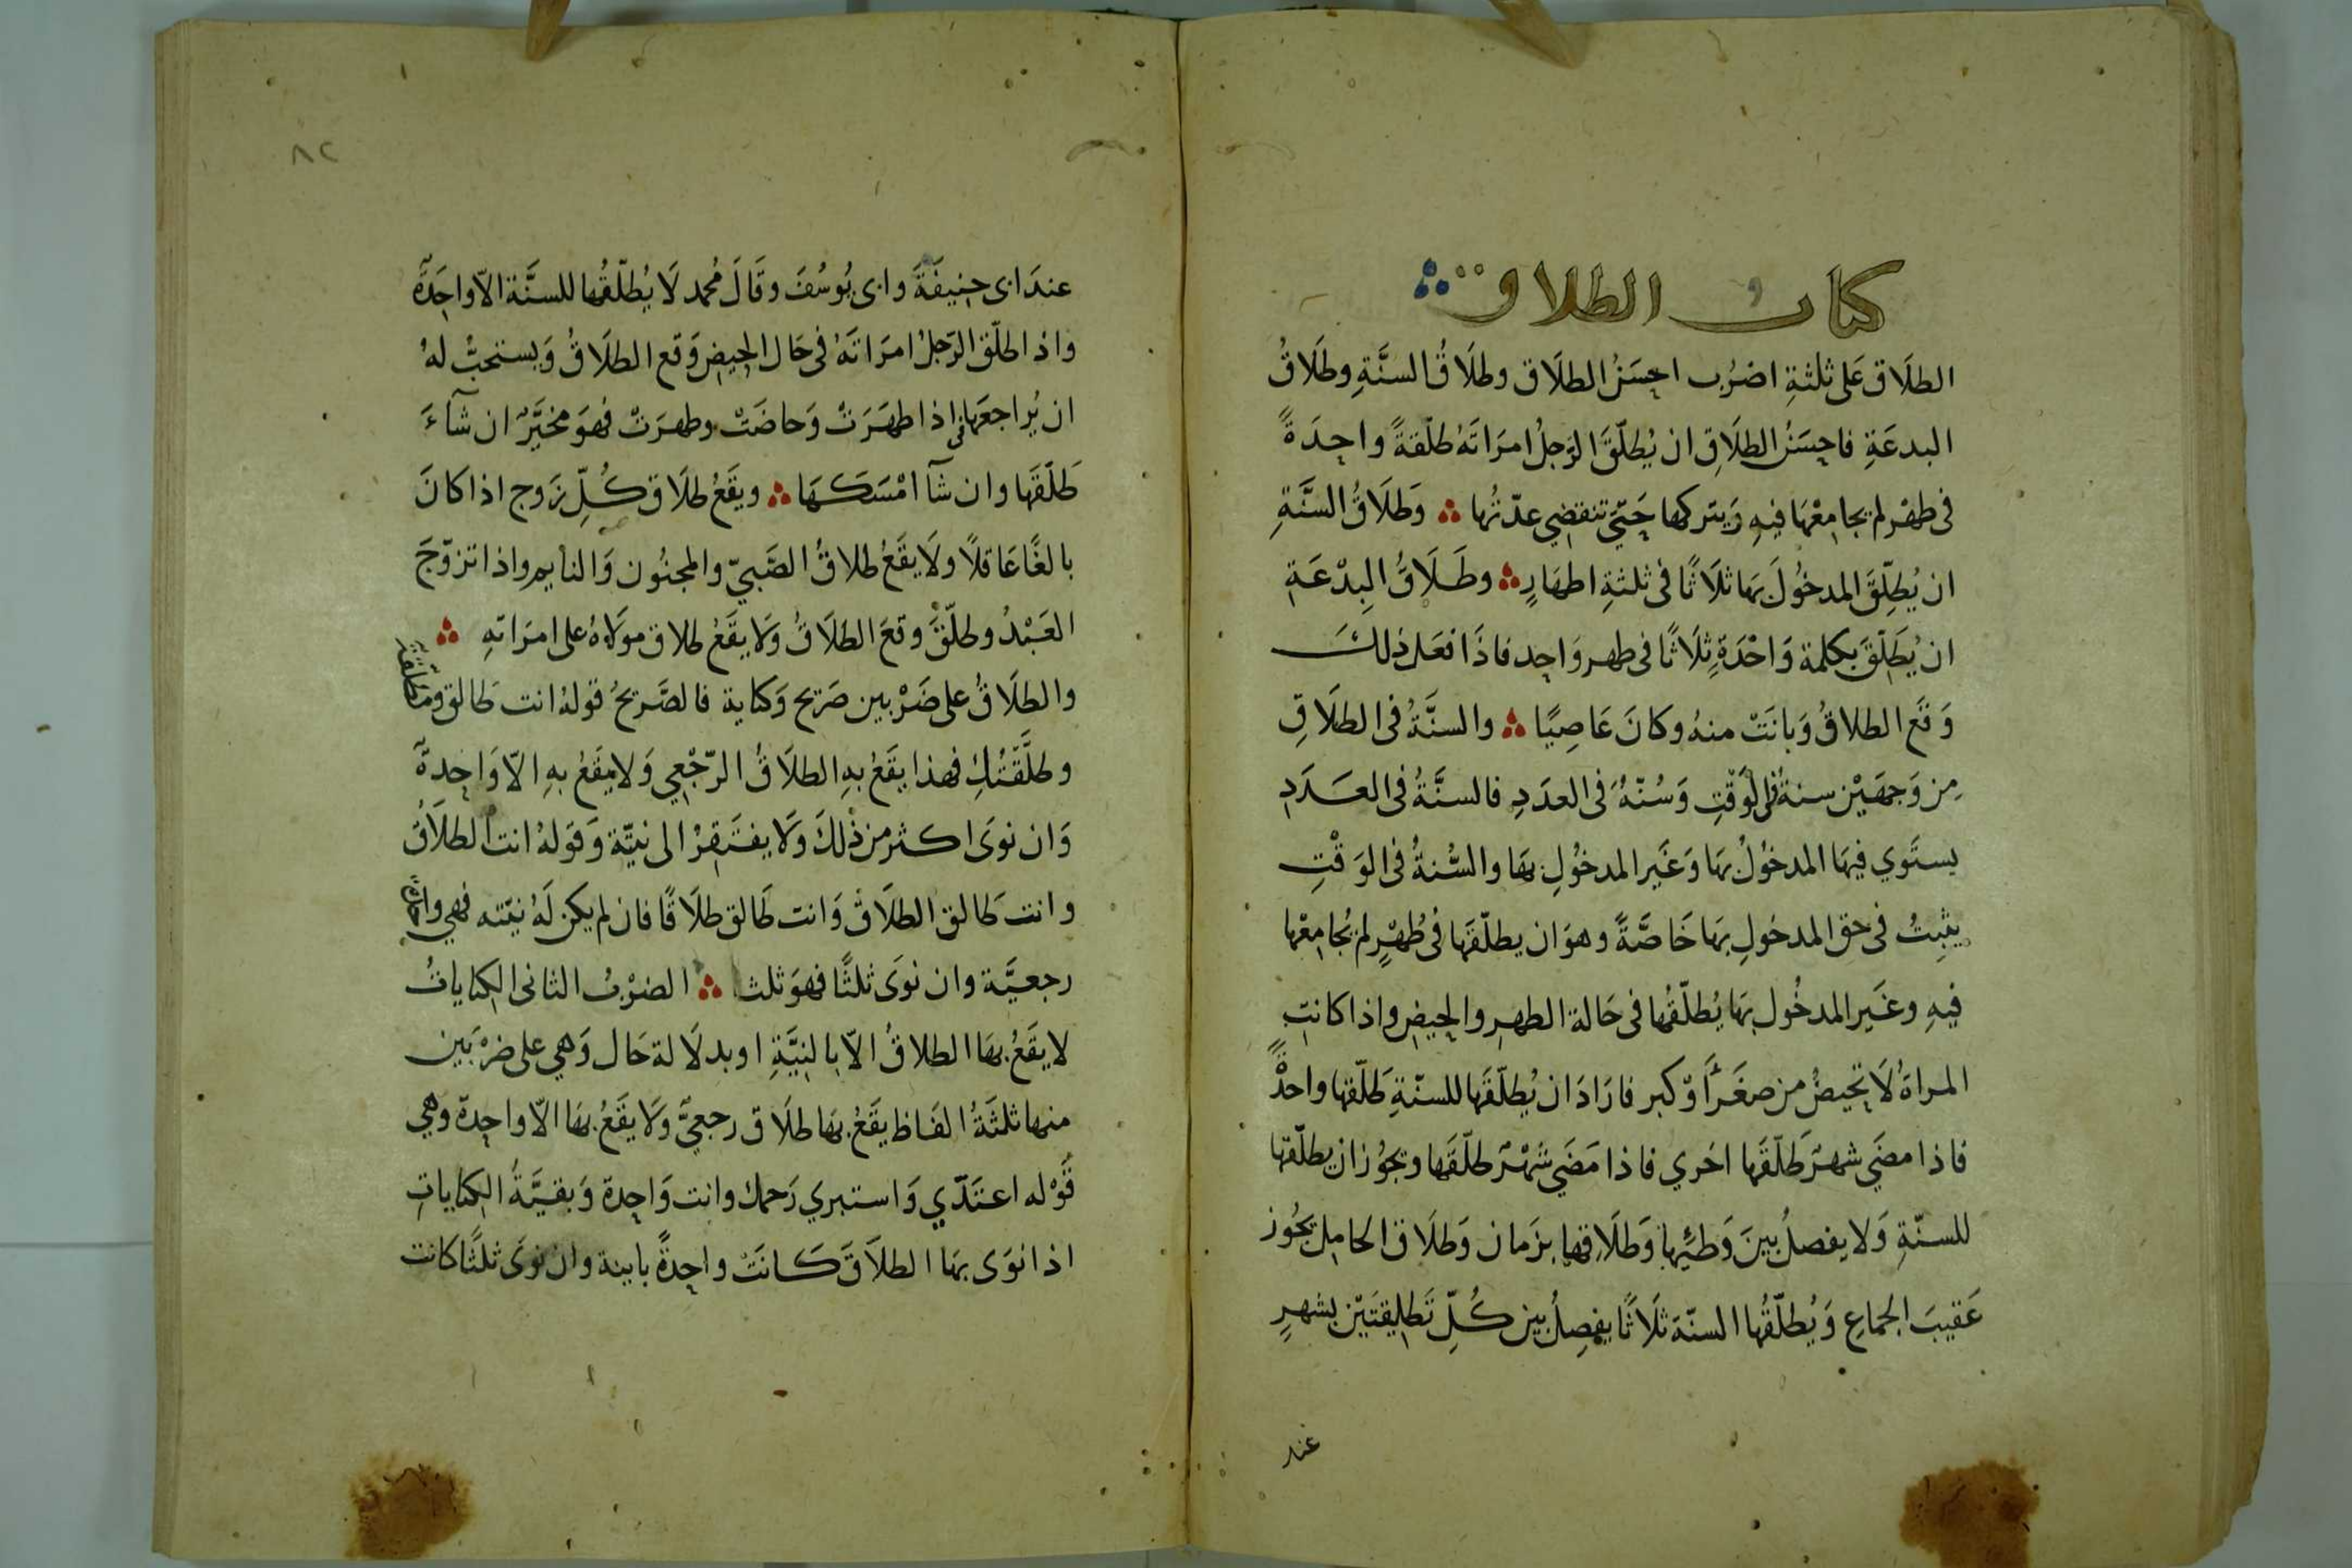 كتاب الطلاق
الطلَاق عَلى ثلثةِ اضرُب احسَنُ الطلَاق وطلَاقُ السنَّةِ وطلَاقُ
البدعَةِ فاحسَنُ الطلَاقِ ان يُطلّقَ الرّجلُ امرَاتَهُ طلقةً واحِدَةً
فى طهْر لم يجامِعْهَا فيهِ وَيتركها حَتّي تنقضِي عدّتُها وَطلَاقُ السنَّةِ
ان يُطلِّقَ المدخُولَ بهَا ثلَاثًا فى ثلثةِ اطهَارٍ وطَلَاقُ البِدْعَةِ
ان يُطَلِّقَ بكلمة وَاحْدَةٍ ثلَاثًا فى طهر وَاحِد فاذَا فعَل ذلك
وَقَع الطلاقُ وَبانَتْ منهُ وكانَ عَاصِيًا والسنَّةُ فى الطلَاقِ
مِن وَجهَيْن سنةُ فى الوَقْتِ وَسُنّةُ فى العدَدِ فالسنَّةُ فى العَدَدِ
يستَوي فيهَا المدخُولُ بهَا وَغَير المدخُولِ بهَا والسُّنةُ فى الوَقْتِ
يثبتُ فى حق المدخولِ بهَا خَاصَّةً وهوَ ان يطلّقَها فى طُهْرٍ لم يُجامِعْها
فيهِ وغَير المدخُول بهَا يُطلّقُها فى حَالة الطهرِ والحيضِ واذا كانتِ
المراةُ لَا تحيضُ من صغَرٍ اَوْ كبر فارَادَ ان يُطلّقَها للسنّةِ طَلّقها واحدةً
فاذا مضَي شهرٌ طَلّقَها اخري فاذا مَضَي شهْرٌ طلّقَها ويجوُز ان يطلّقها
للسنّةِ وَلا يفصلُ بينَ وَطئِها وَطلَاقِها بزَمان وَطلَاق الحامِل يجُوز
عَقيبَ الجماعِ وَيُطلّقُها السنّة ثلَاثًا يفصِلُ بين كُلِّ تَطليقتَيْن بشهرٍ
عند
٨٢
عندَ ابى حنِيفَةَ وابى يُوسُفَ وقَالَ مُحمد لَا يُطلّقُها للسنَّة الاّ واحِدَةً
واذا طلّق الرّجلُ امرَاتَهُ فى حَال الحيضِ وَقع الطلَاقُ وَيستحبُّ لهُ
ان يُراجعَها فاذا طهَرَتْ وَحاضَتْ وطهرَتْ فهوَ مخيَّرٌ ان شآءَ
طَلّقَها وان شآ امْسَكَهَا ويقَعُ طلَاق كُلِّ زَوج اذا كانَ
بالغًا عَاقلًا ولَا يقَعُ طلاقُ الصَّبيّ والمجنُون وَالنايم واذا تزوّجَ
العَبْدُ وطلّقَ وقعَ الطلَاقُ وَلَا يقَعُ طلاق مولَاهُ على امرَاتهِ
والطلَاقُ على ضَرْبين صَريح وَكناية فالصَّريحُ قولهُ انت طَالق ومطلقة
وطلَّقْتُكِ فهذا يقَعُ بهِ الطلَاقُ الرّجْعِي وَلا يقَعُ بهِ الاّ وَاحِدةٌ
وَان نوَى اكثر من ذلكَ وَلَا يفتَقِرُ الى نيّة وَقولهُ انت الطلَاقُ
وانت طَالق الطلَاقَ وَانت طَالق طلَاقًا فان لم يكن لَهُ نيّته فهي واحدة
رجعيَّة وان نوَى ثلثًا فهوَ ثلث الضرْبُ الثانى الكناياتُ
لا يقَعُ بهَا الطلاقُ الاّ بالنِيَّةِ او بدلَالة حَال وَهي على ضرْبَين
منها ثلثَةُ الفَاظ يقَعُ بهَا طلَاق رجعيٌّ وَلَا يقَعُ بهَا الاّ واحِدة وَهي
قَوْله اعتَدّي وَاستبري رَحمك وانت وَاحِدة وَبقيَّةُ الكناياتِ
اذا نوَى بهَا الطلَاقَ كَانَتْ واحِدةً باينة وان نوَى ثلثًا كانت